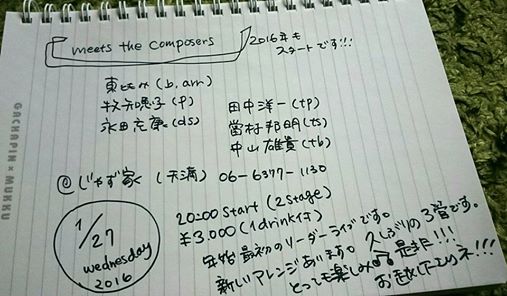 meets the composers
2016年も
スタートです!!!
東ともみ (b, arr)
牧知恵子 (p)
永田充康 (ds)
田中洋一 (tp)
當村邦明 (ts)
中山雄貴 (tb)
@じゃず家 (天満) 06-6377-1130
1/27
wednesday
2016
20:00 start (2stage)
¥3,000 (1drink付)
年始最初のリーダーライブです。
新しいアレンジあります。久しぶりの3管です。
とっても楽しみ 是非!!!
お越し下さいネ!!!
GACHAPIN×MUKKU